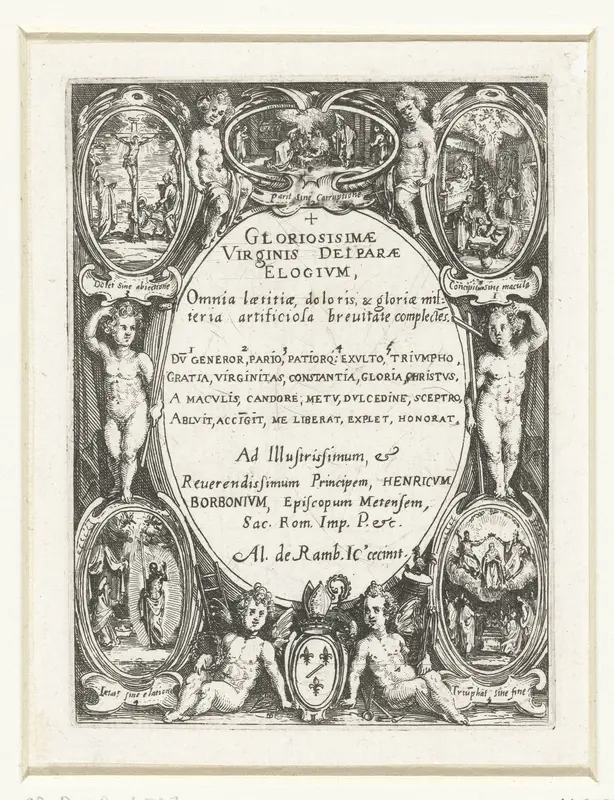 Parit sine Corruptione
Dolet sine abiectione
3
Concipit sine macula
1
GLORIOSISIMÆ
VIRGINIS DEIPARÆ
ELOGIVM,
Omnia lætitiæ, doloris, & gloriæ mis-
teria artificiosa breuitate complectēs.
1 2 3 4 5
DV GENEROR, PARIO, PATIORQ: EXVLTO, TRIVMPHO,
GRATIA, VIRGINITAS, CONSTANTIA, GLORIA, CHRISTVS,
A MACVLIS, CANDORE, METV, DVLCEDINE, SCEPTRO,
ABLVIT, ACCĪGIT, ME LIBERAT, EXPLET, HONORAT,
Ad Illustrissimum, &
Reuerendissimum Principem, HENRICVM
BORBONIVM, Episcopum Metensem,
Sac. Rom. Imp. P. &c.
Al. de Ramb. IC' cecinit.
sine elatione
4
Triūphat sine fine